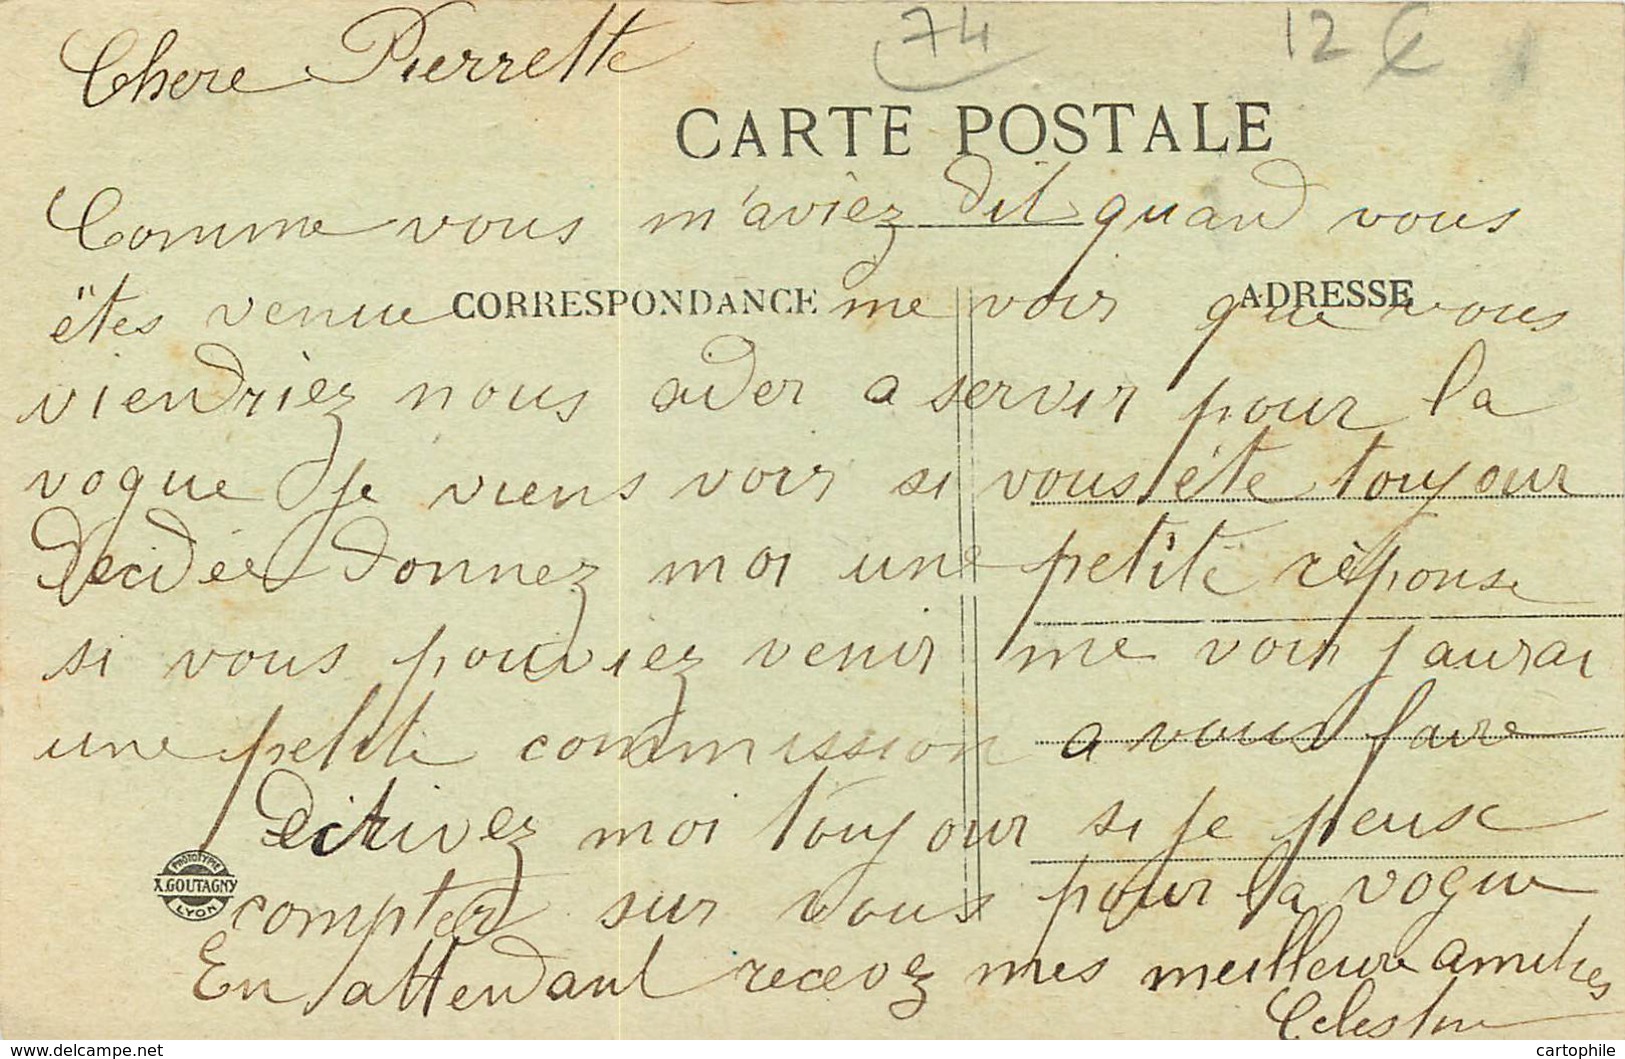 74
12 €
Chere Pierrette
CARTE POSTALE
Comme vous m'aviez dit quand vous
êtes venue me voir que vous
CORRESPONDANCE
ADRESSE
viendriez nous aider a servir pour la
vogue je viens voir si vous ête toujour
decidée donnez moi une petite réponse
si vous pouviez venir me voir j aurai
une petite commission a vous faire
ecrivez moi toujour si je peux
PHOTOTYPIE
A. GOUTAGNY
LYON
compter sur vous pour la vogue
En attendant recevez mes meilleure amities
Celestine
delcampe.net
cartophile